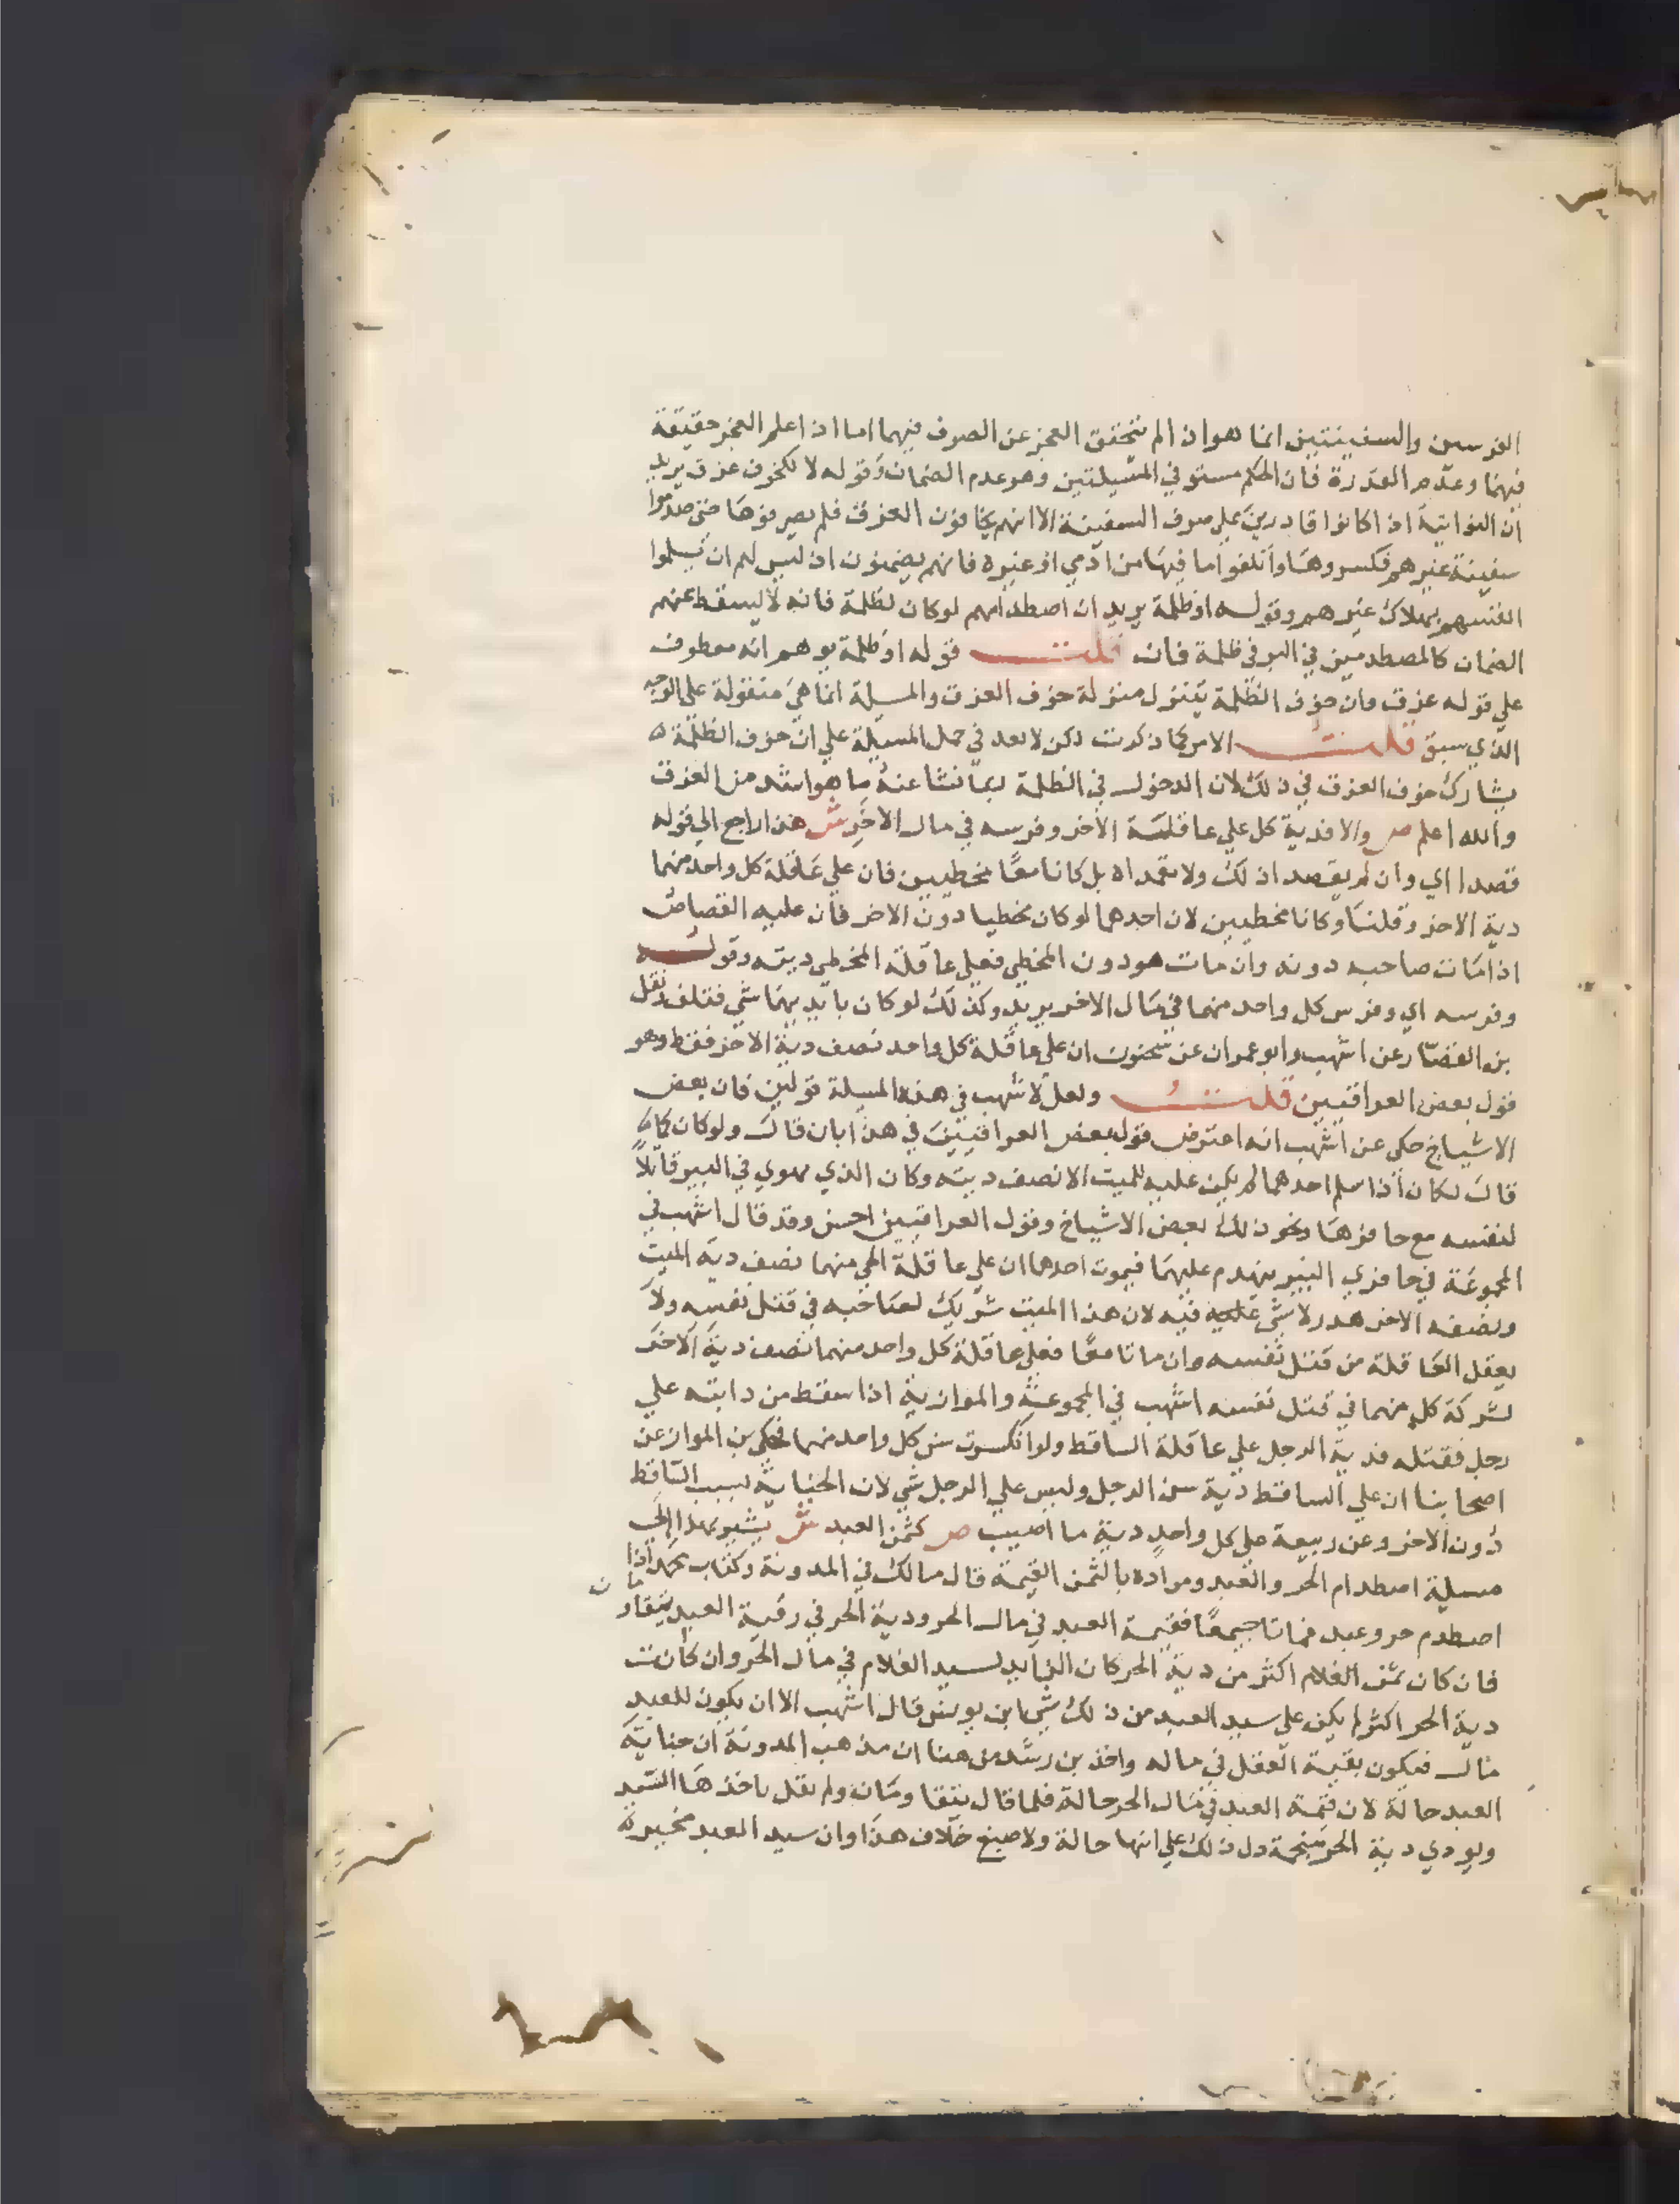 الفرسين والسفينتين انما هو ان لم يتحقق العجز عن الصرف فيهما اما اذا علم العجز حقيقة
فيهما وعدم القدرة فان الحكم مستو في المسيلتين وهو عدم الضمان وقوله لا لكخوف غرق يريد
ان النواتية اذا كانوا قادرين على صرف السفينة الا انهم يخافون الغرق فلم يصرفوها حتى صدموا
سفينة غيرهم فكسروها واتلفوا ما فيها من ادمي او غيره فانهم يضمنون اذ ليس لهم ان يسلموا
انفسهم بهلاك غيرهم وقوله او ظلمة يريد ان اصطدامهم لو كان لظلمة فانه لا يسقط عنهم
الضمان كالمصطدمين في البر في ظلمة فان قلت قوله او ظلمة يوهم انه معطوف
على قوله غرق وان خوف الظلمة يتنزل منزلة خوف الغرق والمسيلة انما هي منقولة على الوجه
الذي سبق قلت الامر كما ذكرت لكن لا بعد في حمل المسيلة على ان خوف الظلمة ه
يشارك خوف الغرق في ذلك لان الدخول في الظلمة ربما نشا عنه ما هو اشد من الغرق
والله اعلم ص والا فدية كل على عاقلة الاخر وفرسه في مال الاخر ش هذا راجع الى قوله
قصدا اي وان لم يقصدا ذلك ولا تعمداه بل كانا معا مخطيين فان على عاقلة كل واحد منهما
دية الاخر وقلنا وكانا مخطيين لان احدهما لو كان مخطيا دون الاخر فان عليه القصاص
اذا مات صاحبه دونه وان مات هو دون المخطي فعلى عاقلة المخطي ديته وقوله
وفرسه اي وفرس كل واحد منهما في مال الاخر يريد وكذلك لو كان بايديهما شي فتلف ونقل
بن القصار عن اشهب وابو عمران عن سحنون ان على عاقلة كل واحد نصف دية الاخر فقط وهو
قول بعض العراقيين قلت ولعل لاشهب في هذه المسيلة قولين فان بعض
الاشياخ حكى عن اشهب انه اعترض قول بعض العراقيين في هذا بان قال ولو كان كما
قال لكان اذا سلم احدهما لم يكن عليه للميت الا نصف ديته وكان الذي يهوي في البير قاتلا
لنفسه مع حافرها ونحو ذلك لبعض الاشياخ وقول العراقيين احسن وقد قال اشهب في
المجموعة في حافري البير ينهدم عليهما فيموت احدهما ان على عاقلة الحي منهما نصف دية الميت
ونصفه الاخر هدر لا شي عليه فيه لان هذا الميت شريك لصاحبه في قتل نفسه ولا
يعقل العاقلة من قتل نفسه وان ماتا معا فعلى عاقلة كل واحد منهما نصف دية الاخر
لشركة كل منهما في قتل نفسه اشهب في المجموعة والموازية اذا سقط من دابته على
رجل فقتله فدية الرجل على عاقلة الساقط ولو انكسرت سن كل واحد منهما فحكى بن المواز عن
اصحابنا ان على الساقط دية سن الرجل وليس على الرجل شي لان الجناية بسبب الساقط
دون الاخر وعن ربيعة على كل واحد دية ما اصيب ص كثمن العبد ش يشير بهذا الى
مسيلة اصطدام الحر والعبد ومراده بالثمن القيمة قال مالك في المدونة وكتاب محمد اذا
اصطدم حر وعبد فماتا جميعا فقيمة العبد في مال الحر ودية الحر في رقبة العبد يتقاومان
فان كان ثمن الغلام اكثر من دية الحر كان الزايد لسيد الغلام في مال الحر وان كانت
دية الحر اكثر لم يكن على سيد العبد من ذلك شي ابن يونس قال اشهب الا ان يكون للعبد
مال فيكون بقية العقل في ماله واخذ بن رشد من هنا ان مذهب المدونة ان جناية
العبد حالة لان قيمة العبد في مال الحر حالة فلما قال يتقاومان ولم يقل ياخذها السيد
ويودي دية الحر منجمة دل ذلك على انها حالة ولاصبغ خلاف هذا وان سيد العبد مخير في